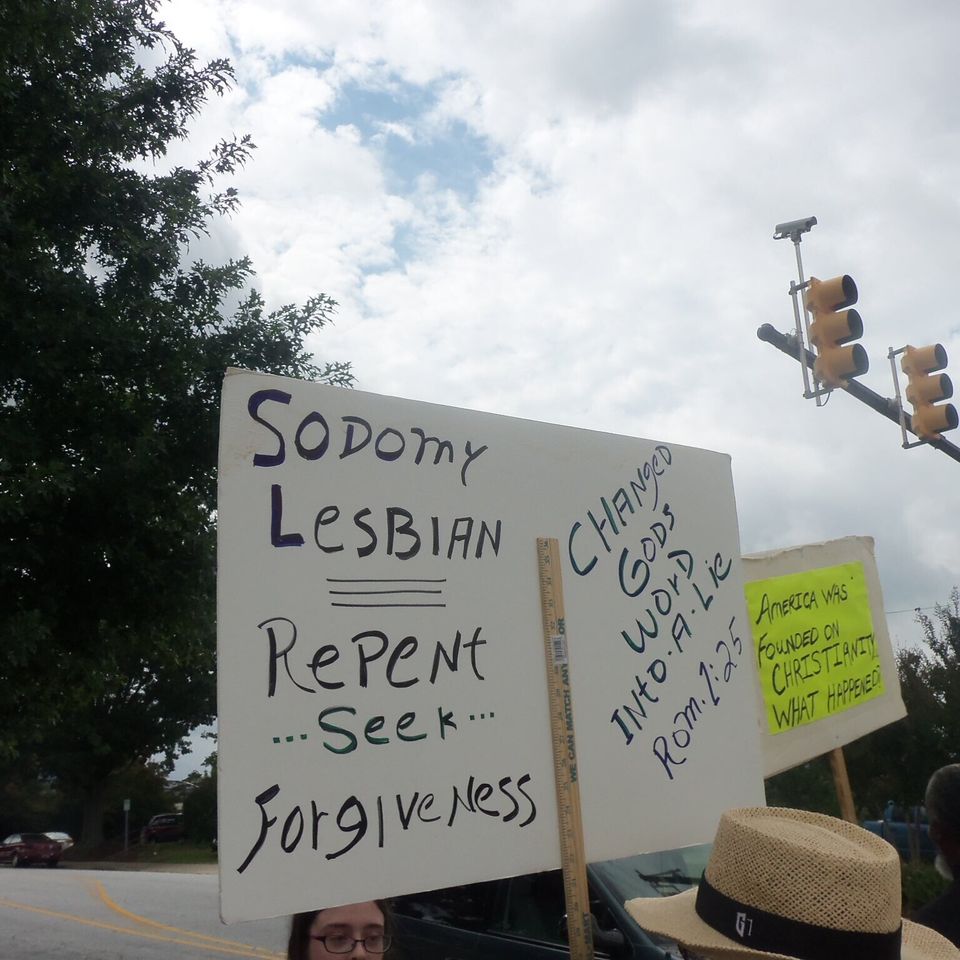 SODOMY
LESBIAN
REPENT
...Seek...
ForgiveNess
CHANGED
GODS
WORD
INTO.A.LIE
ROM.1:25
WE CAN MATCH ANY
OR
AMERICA WAS
FOUNDED ON
CHRISTIANITY
WHAT HAPPENED?
G